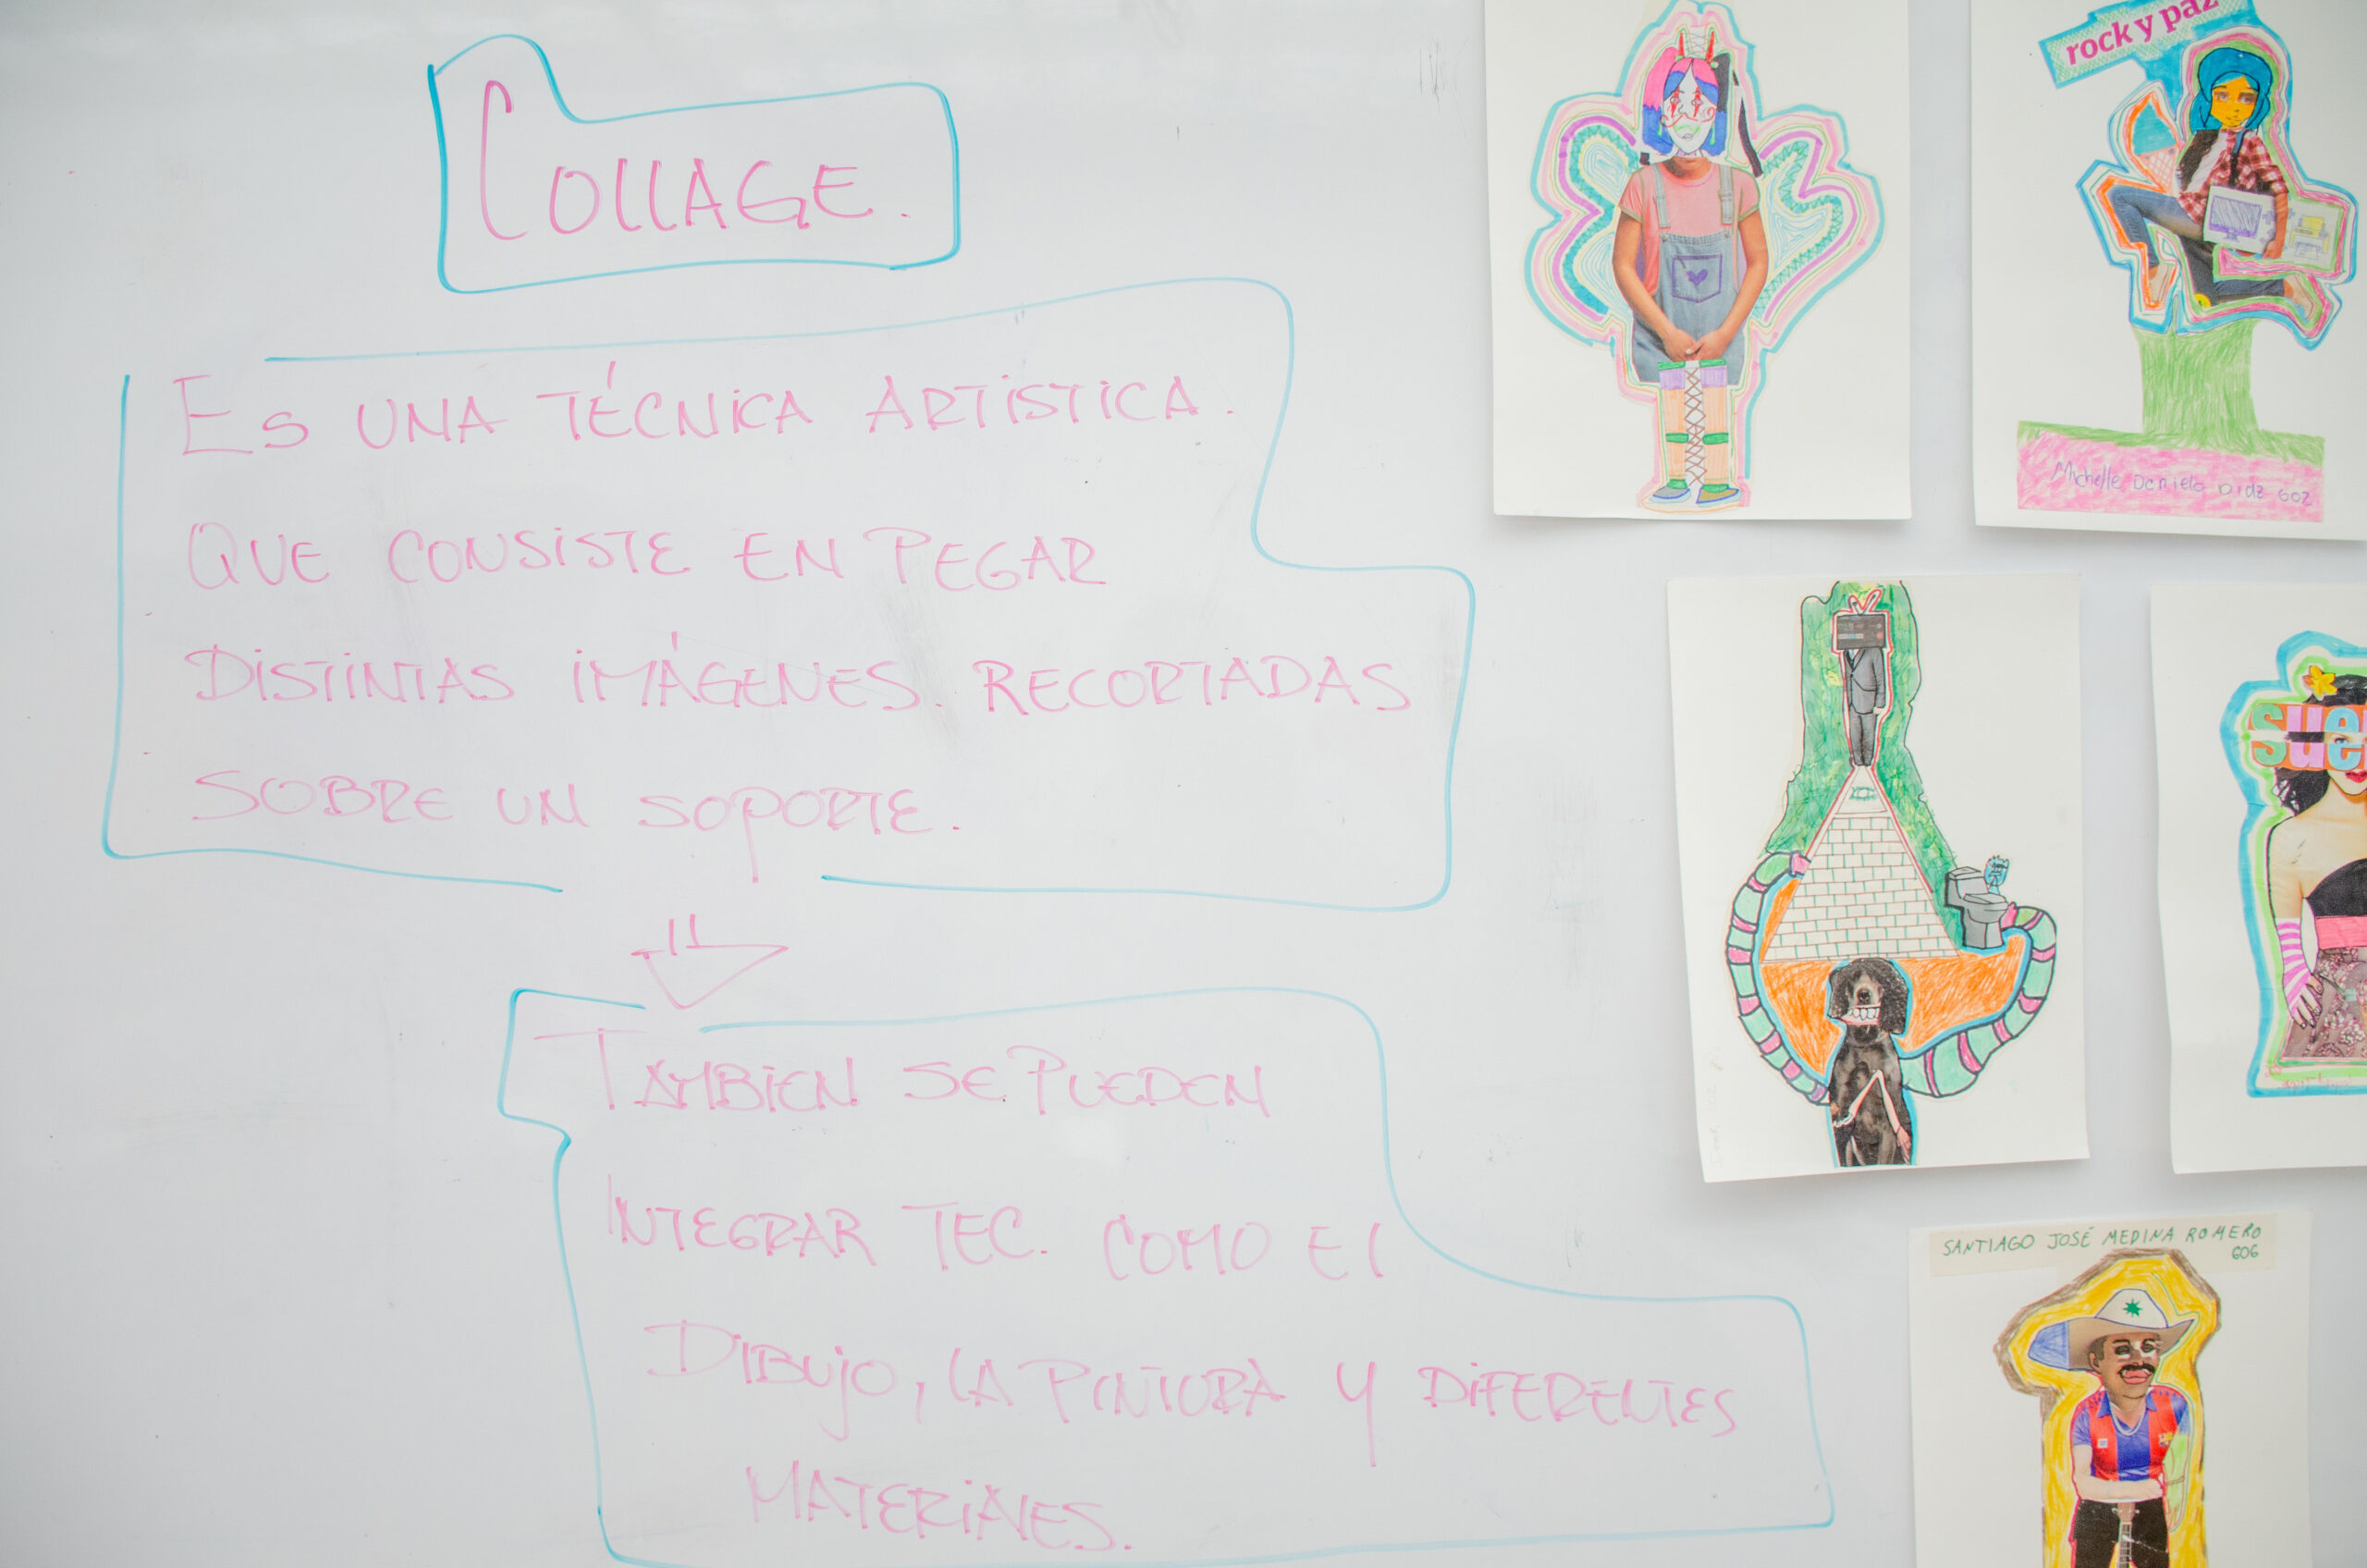 COLLAGE.
ES UNA TÉCNICA ARTISTICA.
QUE CONSISTE EN PEGAR
DISTINTAS IMÁGENES. RECORTADAS
SOBRE UN SOPORTE.
TAMBIEN SE PUEDEN
INTEGRAR TEC. COMO EL
DIBUJO, LA PINTURA Y DIFERENTES
MATERIALES.
rock y paz
Michelle Daniela Diaz 602
SANTIAGO JOSÉ MEDINA ROMERO
606